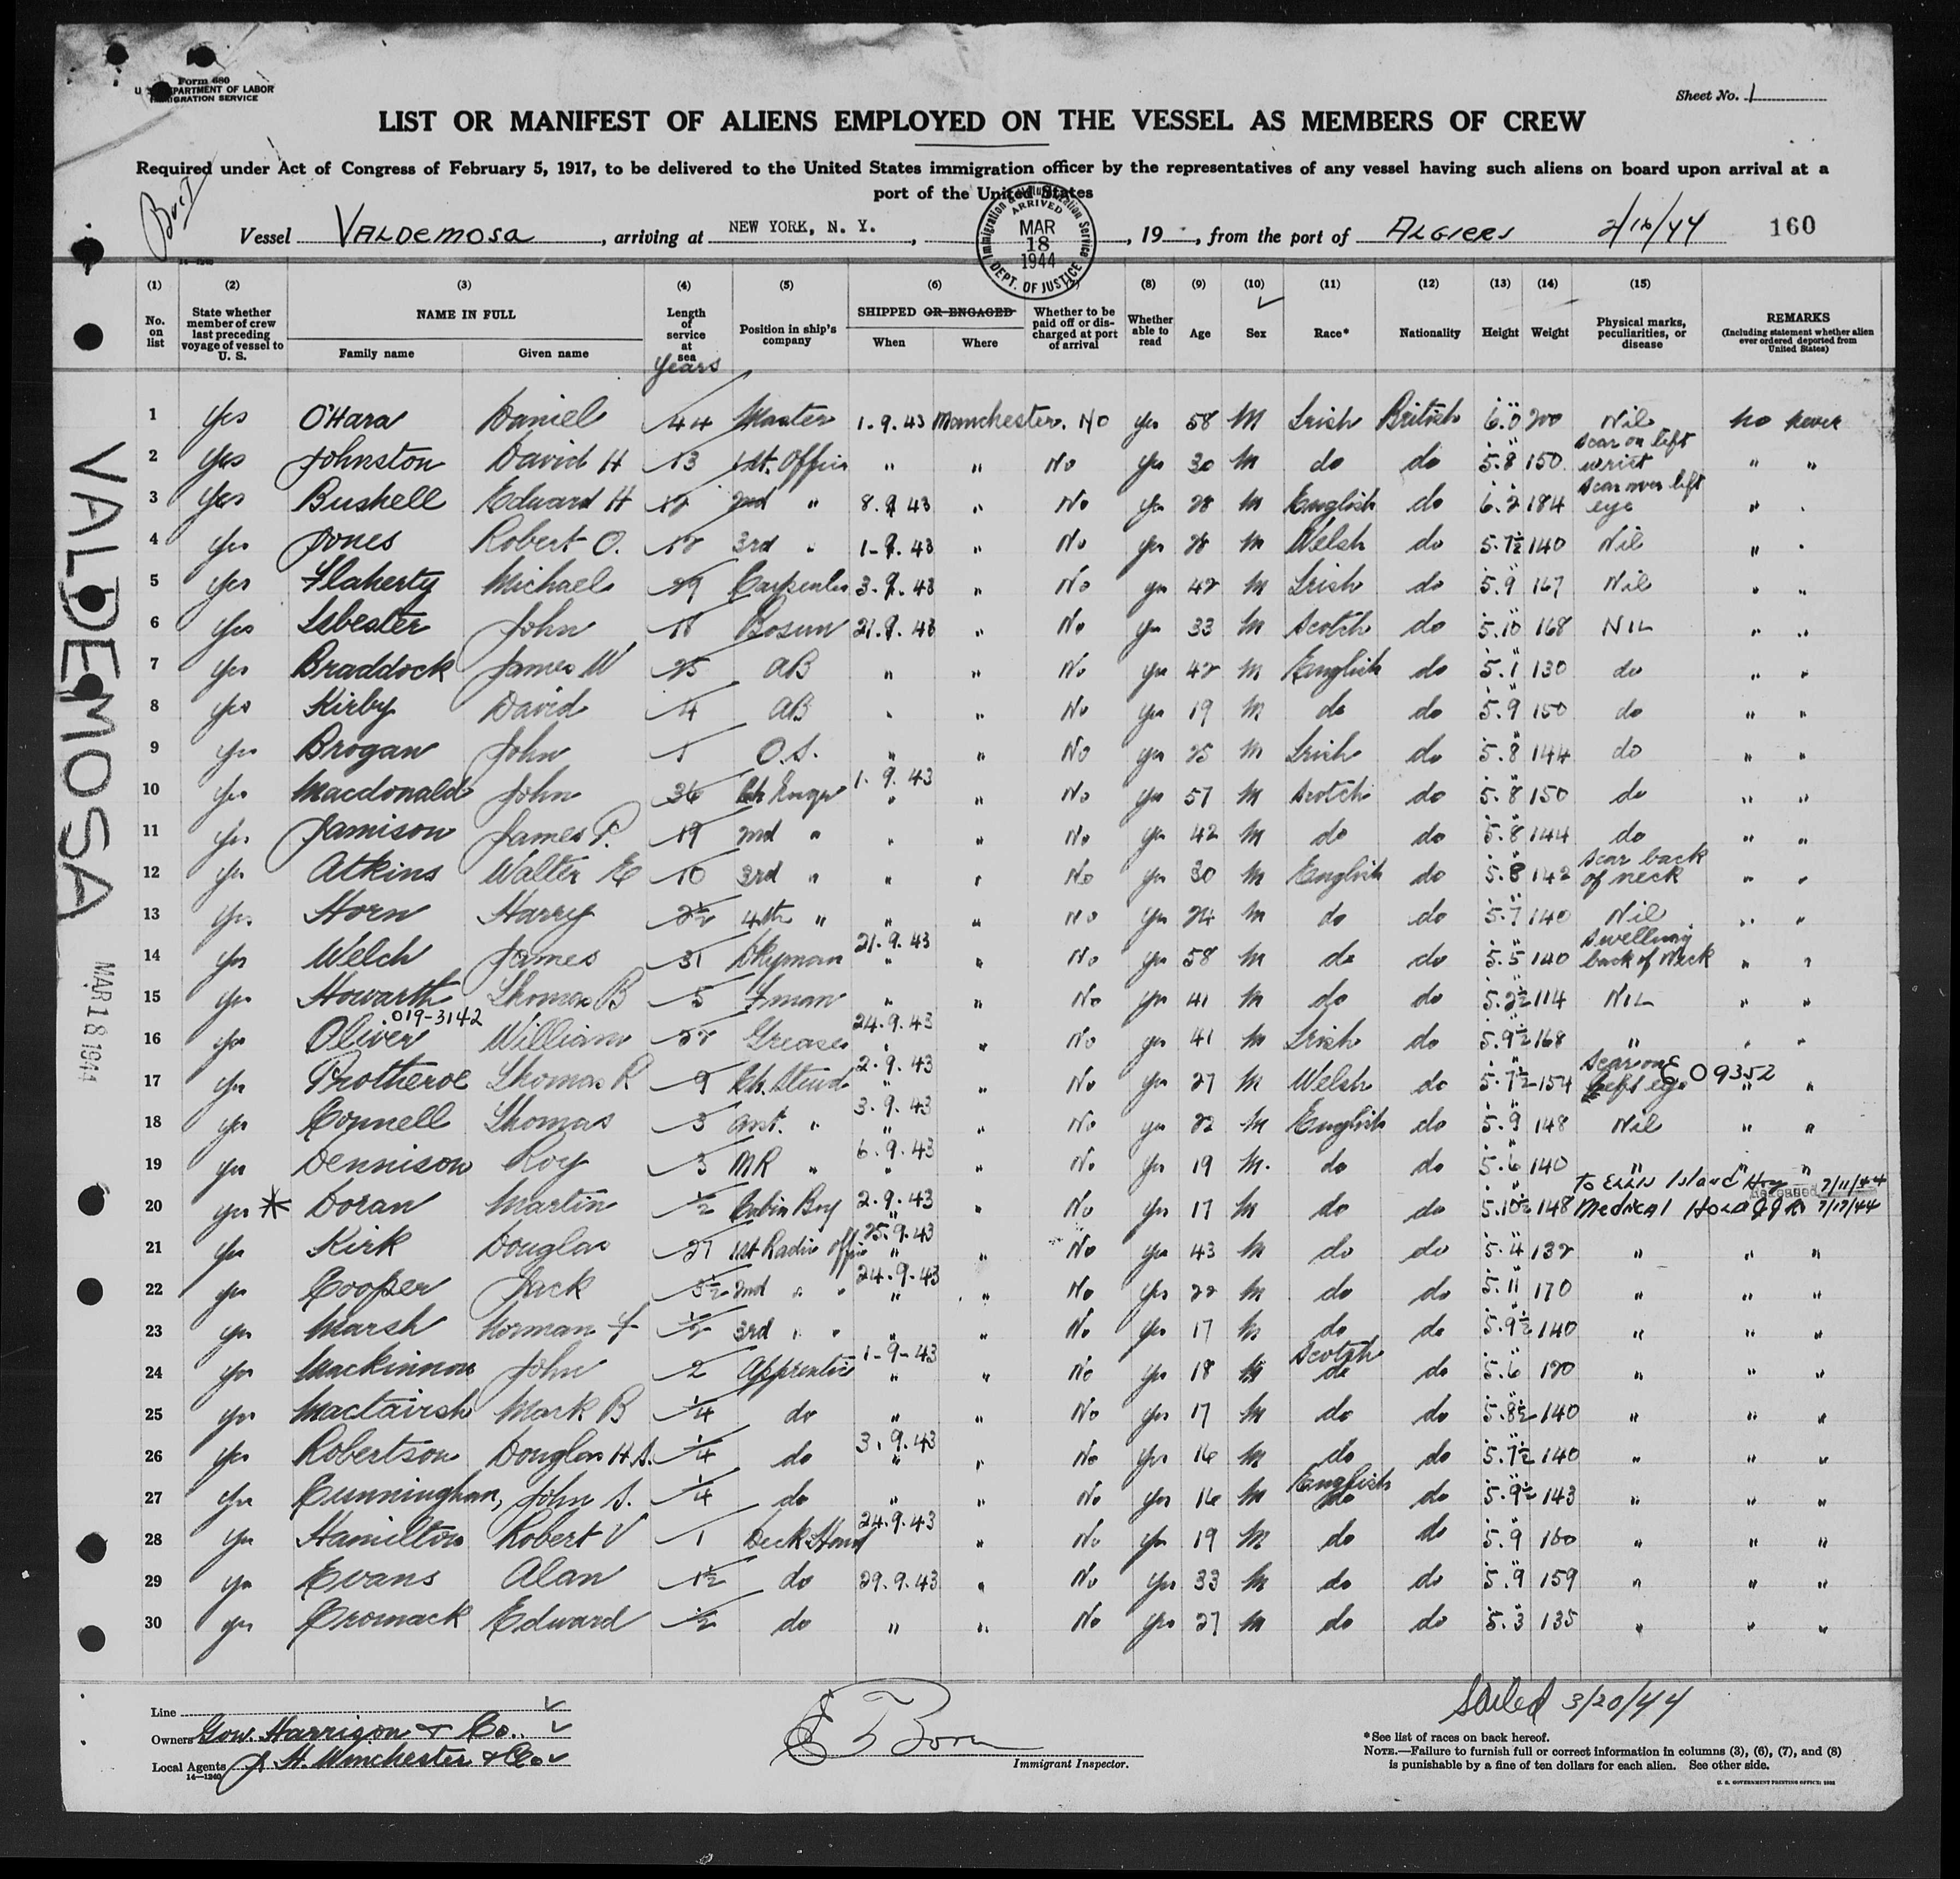 Form 680
U. S. DEPARTMENT OF LABOR
IMMIGRATION SERVICE
Sheet No. 1
LIST OR MANIFEST OF ALIENS EMPLOYED ON THE VESSEL AS MEMBERS OF CREW
Required under Act of Congress of February 5, 1917, to be delivered to the United States immigration officer by the representatives of any vessel having such aliens on board upon arrival at a
port of the United States
Vessel VALDEMOSA, arriving at NEW YORK, N. Y., 19 , from the port of ALGIERS 2/16/44 160
Immigration & Naturalization Service ARRIVED MAR 18 1944 DEPT. OF JUSTICE
14-1240
(1) (2) (3) (4) (5) (6) (8) (9) (10) (11) (12) (13) (14) (15)
No. on list
State whether member of crew last preceding voyage of vessel to U. S.
NAME IN FULL
Family name Given name
Length of service at sea
years
Position in ship's company
SHIPPED OR ENGAGED
When Where
Whether to be paid off or discharged at port of arrival
Whether able to read
Age
Sex
Race*
Nationality
Height
Weight
Physical marks, peculiarities, or disease
REMARKS
(Including statement whether alien ever ordered deported from United States)
1 Yes O'Hara Daniel 44 Master 1.9.43 Manchester. No yes 58 M Irish British 6.0 200 Nil No Never
2 Yes Johnston David H 13 1st. Offcr " " No yes 30 M do do 5.8 150 scar on left wrist " "
3 Yes Bushell Edward H 12 2nd " 8.9.43 " No yes 28 M English do 6.2 184 scar over left eye "
4 yes Jones Robert O. 12 3rd " 1-9.43 " No yes 28 M Welsh do 5.7½ 140 Nil "
5 yes Flaherty Michael 29 Carpenter 3.9.43 " No yes 42 M Irish do 5.9 167 Nil " "
6 yes Isbester John 18 Bosun 21.9.43 " No yes 33 M Scotch do 5.10 168 NIL " "
7 yes Braddock James W 25 AB " " No yes 42 M English do 5.1 130 do " "
8 yes Kirby David 4 AB " " No yes 19 M do do 5.9 150 do " "
9 yes Brogan John 1 O.S. " " No yes 25 M Irish do 5.8 144 do " "
10 yes Macdonald John 36 Ch Engr 1.9.43 " No yes 57 M Scotch do 5.8 150 do " "
11 yes Jamison James P. 19 2nd " " " No yes 42 M do do 5.8 144 do " "
12 yes Atkins Walter E 10 3rd " " " No yes 30 M English do 5.8 142 scar back of neck " "
13 yes Horn Harry 2½ 4th " " " No yes 24 M do do 5.7 140 Nil " "
14 yes Welch James 31 Dkyman 21.9.43 " No yes 58 M do do 5.5 140 swelling back of neck " "
15 yes Howarth Thomas B 5 Fman " " No yes 41 M do do 5.2½ 114 NIL " "
019-3142
16 yes Oliver William 22 Greaser 24.9.43 " No yes 41 M Irish do 5.9½ 168 " " "
17 yes Protheroe Thomas R 9 Ch. Stewd 2.9.43 " No yes 27 M Welsh do 5.7½ 154 scar on left eye E 09352 " "
18 yes Connell Thomas 3 asst. " 3.9.43 " No yes 22 M English do 5.9 148 Nil " "
19 yes Dennison Roy 3 MR " 6.9.43 " No yes 19 M. do do 5.6 140 " " "
20 yes * Doran Martin ½ Cabin Boy 2.9.43 " No yes 17 M do do 5.10½ 148 To Ellis Island Released Medical Hold
21 yes Kirk Douglas 27 1st Radio offcr 25.9.43 " No yes 43 M do do 5.4 132 " " "
22 yes Cooper Jack 3½ 2nd " " 24.9.43 " No yes 22 M do do 5.11 170 " " "
23 yes Marsh Norman F ½ 3rd " " " " No yes 17 M do do 5.9½ 140 " " "
24 yes Mackinnon John 2 Apprentice 1-9-43 " No yes 18 M Scotch do 5.6 120 " " "
25 yes Mactavish Mark B ¼ do " " No yes 17 M do do 5.8½ 140 " " "
26 yes Robertson Douglas H.S. ¼ do 3.9.43 " No yes 16 M do do 5.7½ 140 " " "
27 yes Cunningham, John S. ¼ do " " No yes 16 M English do 5.9½ 143 " " "
28 yes Hamilton Robert V 1 Deck Hand 24.9.43 " No yes 19 M do do 5.9 160 " " "
29 yes Evans Alan 1½ do 29.9.43 " No yes 33 M do do 5.9 159 " " "
30 yes Cromack Edward ½ do " " No yes 27 M do do 5.3 135 " " "
VALDEMOSA
MAR 18 1944
Sailed 3/20/44
Line
Owners Gow. Harrison & Co.
Local Agents J H. Winchester & Co
14-1240
Immigrant Inspector.
*See list of races on back hereof.
NOTE.—Failure to furnish full or correct information in columns (3), (6), (7), and (8)
is punishable by a fine of ten dollars for each alien. See other side.
U. S. GOVERNMENT PRINTING OFFICE